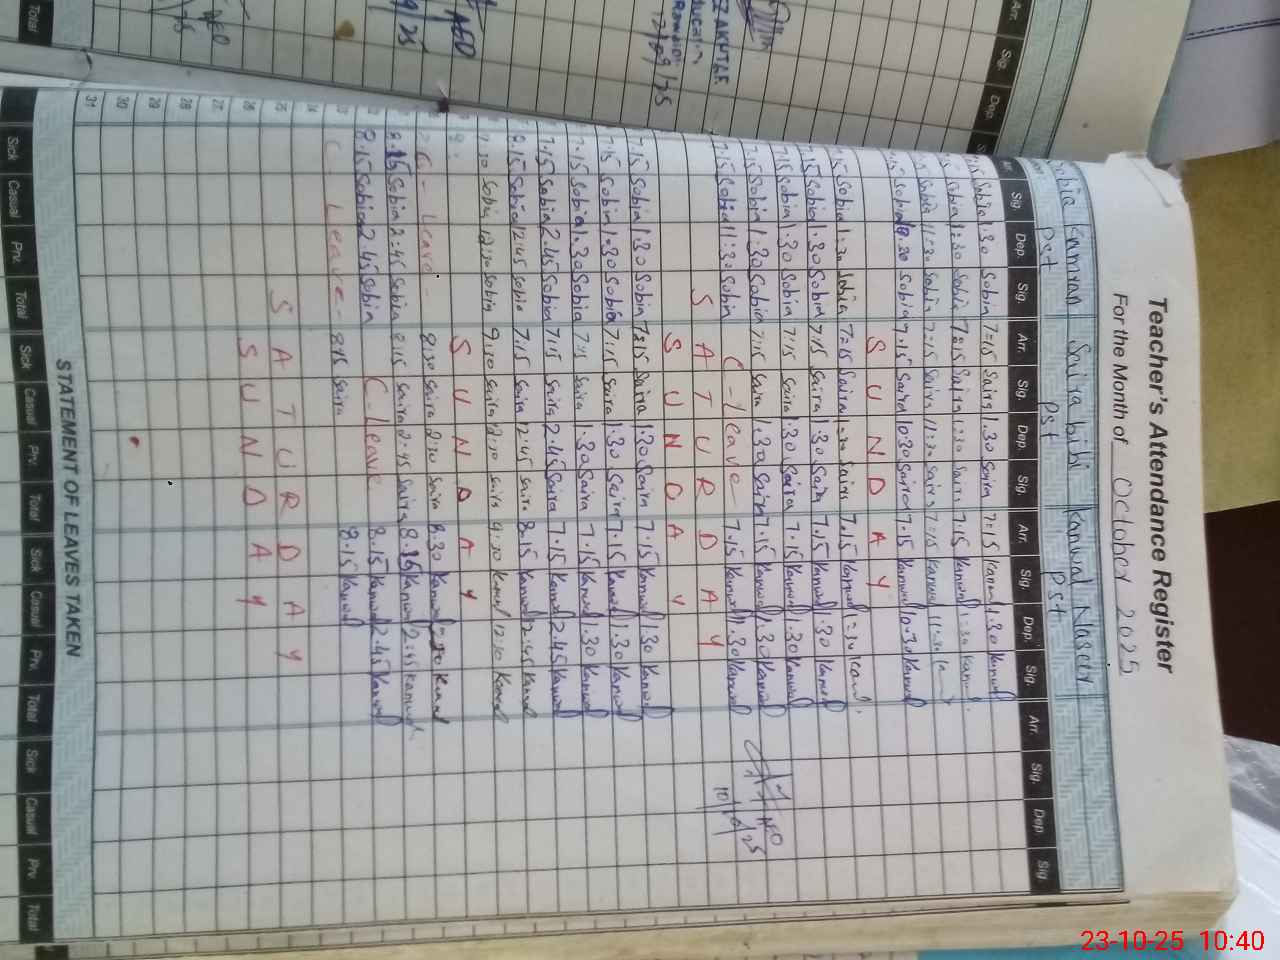 Teacher's Attendance Register
For the Month of October 2025
Sobia Kanwal Saira bibi Kanwal Naseer
Pst Pst Pst
Sig. Dep. Sig. Arr. Sig. Dep. Sig. Arr. Sig. Dep. Sig. Arr. Sig. Dep. Sig
Sobia 1:30 Sobia 7:15 Saira 1.30 Saira 7:15 Kanwal 1.30 Kanwal
Sobia 1:30 Sobia 7:15 Saira 1:30 Saira 7.15 Kanwal 1:30 Kanwal
Sobia 11:30 Sobia 7:15 Saira 11:30 Saira 7:15 Kanwal 11:30
Sobia 10.30 Sobia 7.15 Saira 10:30 Saira 7.15 Kanwal 10.30 Kanwal
S U N D A Y
Sobia 1:30 Sobia 7:15 Saira 1:30 Saira 7.15 Kanwal 1:30
Sobia 1:30 Sobia 7:15 Saira 1.30 Saira 7.15 Kanwal 1.30 Kanwal
Sobia 1:30 Sobia 7:15 Saira 1:30 Saira 7.15 Kanwal 1.30 Kanwal
7.15 Sobia 1:30 Sobia 7:15 Saira 1.30 Saira 7.15 Kanwal 1.30 Kanwal
7.15 Sobia 11:30 Sobia C-leave 7.15 Kanwal 11.30 Kanwal
AEO
10/10/25
S A T U R D A Y
S U N D A Y
7.15 Sobia 1:30 Sobia 7:15 Saira 1:30 Saira 7.15 Kanwal 1:30 Kanwal
7.15 Sobia 1:30 Sobia 7:15 Saira 1:30 Saira 7.15 Kanwal 1:30 Kanwal
7.15 Sobia 1:30 Sobia 7:15 Saira 1.30 Saira 7.15 Kanwal 1.30 Kanwal
7.15 Sobia 2.45 Sobia 7:15 Saira 2.45 Saira 7.15 Kanwal 2.45 Kanwal
8.15 Sobia 12:45 Sobia 7.15 Saira 12:45 Saira 8.15 Kanwal 12:45 Kanwal
9.30 Sobia 12:30 Sobia 9:30 Saira 12:30 Saira 9:30 Kanwal 12:30 Kanwal
S U N D A Y
C - Leave - 8:30 Saira 2:30 Saira 8.30 Kanwal 2:30 Kanwal
8.15 Sobia 2:45 Sobia 8:15 Saira 2:45 Saira 8.15 Kanwal 2:45 Kanwal
8.15 Sobia 2.45 Sobia C-Leave 8.15 Kanwal 2.45 Kanwal
C - Leave - 8:15 Saira 8.15 Kanwal
24
25 S A T U R D A Y
26 S U N D A Y
27
28
29
30
31
STATEMENT OF LEAVES TAKEN
Sick Casual Prv. Total Sick Casual Prv. Total Sick Casual Prv. Total Sick Casual Prv. Total
Arr. Sig. Dep.
AEO
Total
23-10-25 10:40